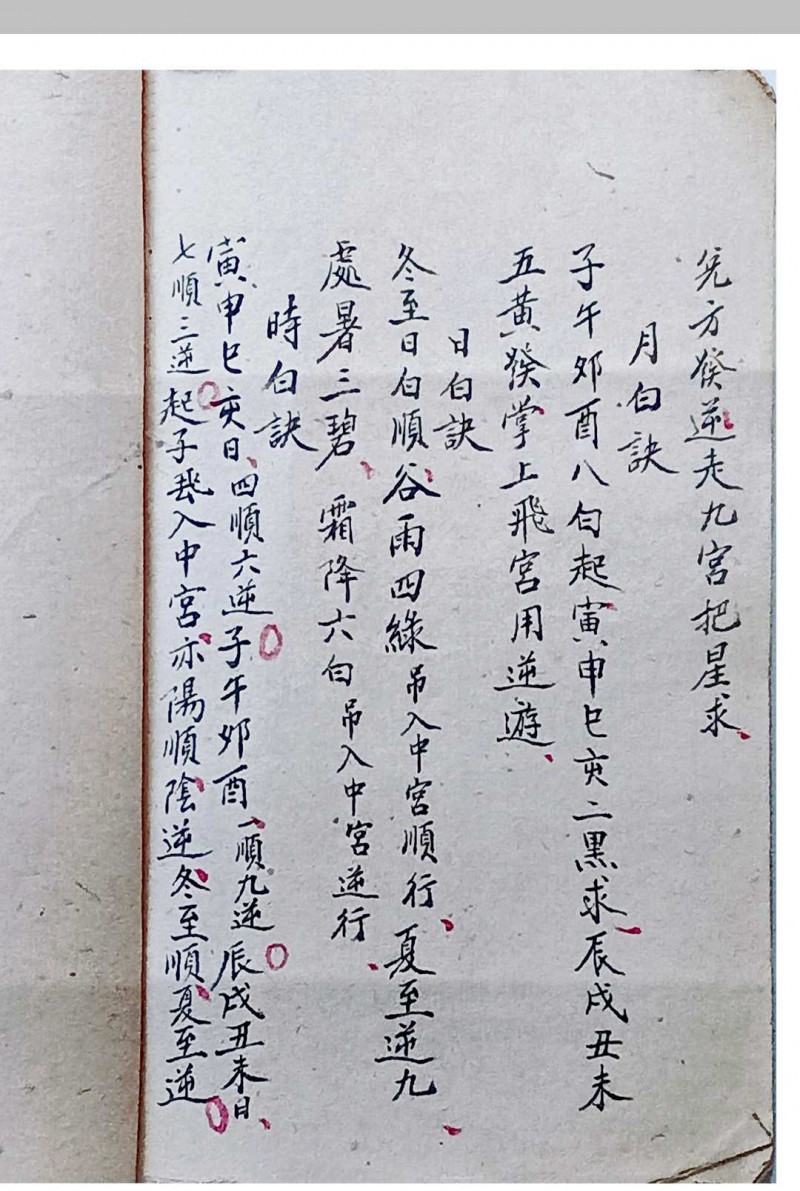 兌方發逆走九宮把星求、
月白訣
子午卯酉八白起寅申巳亥二黑求、辰戌丑未
五黃發掌上飛宮用逆遊、
日白訣
冬至日白順、谷雨四綠吊入中宮順行、夏至逆九、
處暑三碧、霜降六白吊入中宮逆行、
時白訣
寅申巳亥日、四順六逆○子午卯酉、一順九逆○辰戌丑未日、
七順三逆○起子我入中宮、亦陽順、陰逆、冬至順、夏至逆○